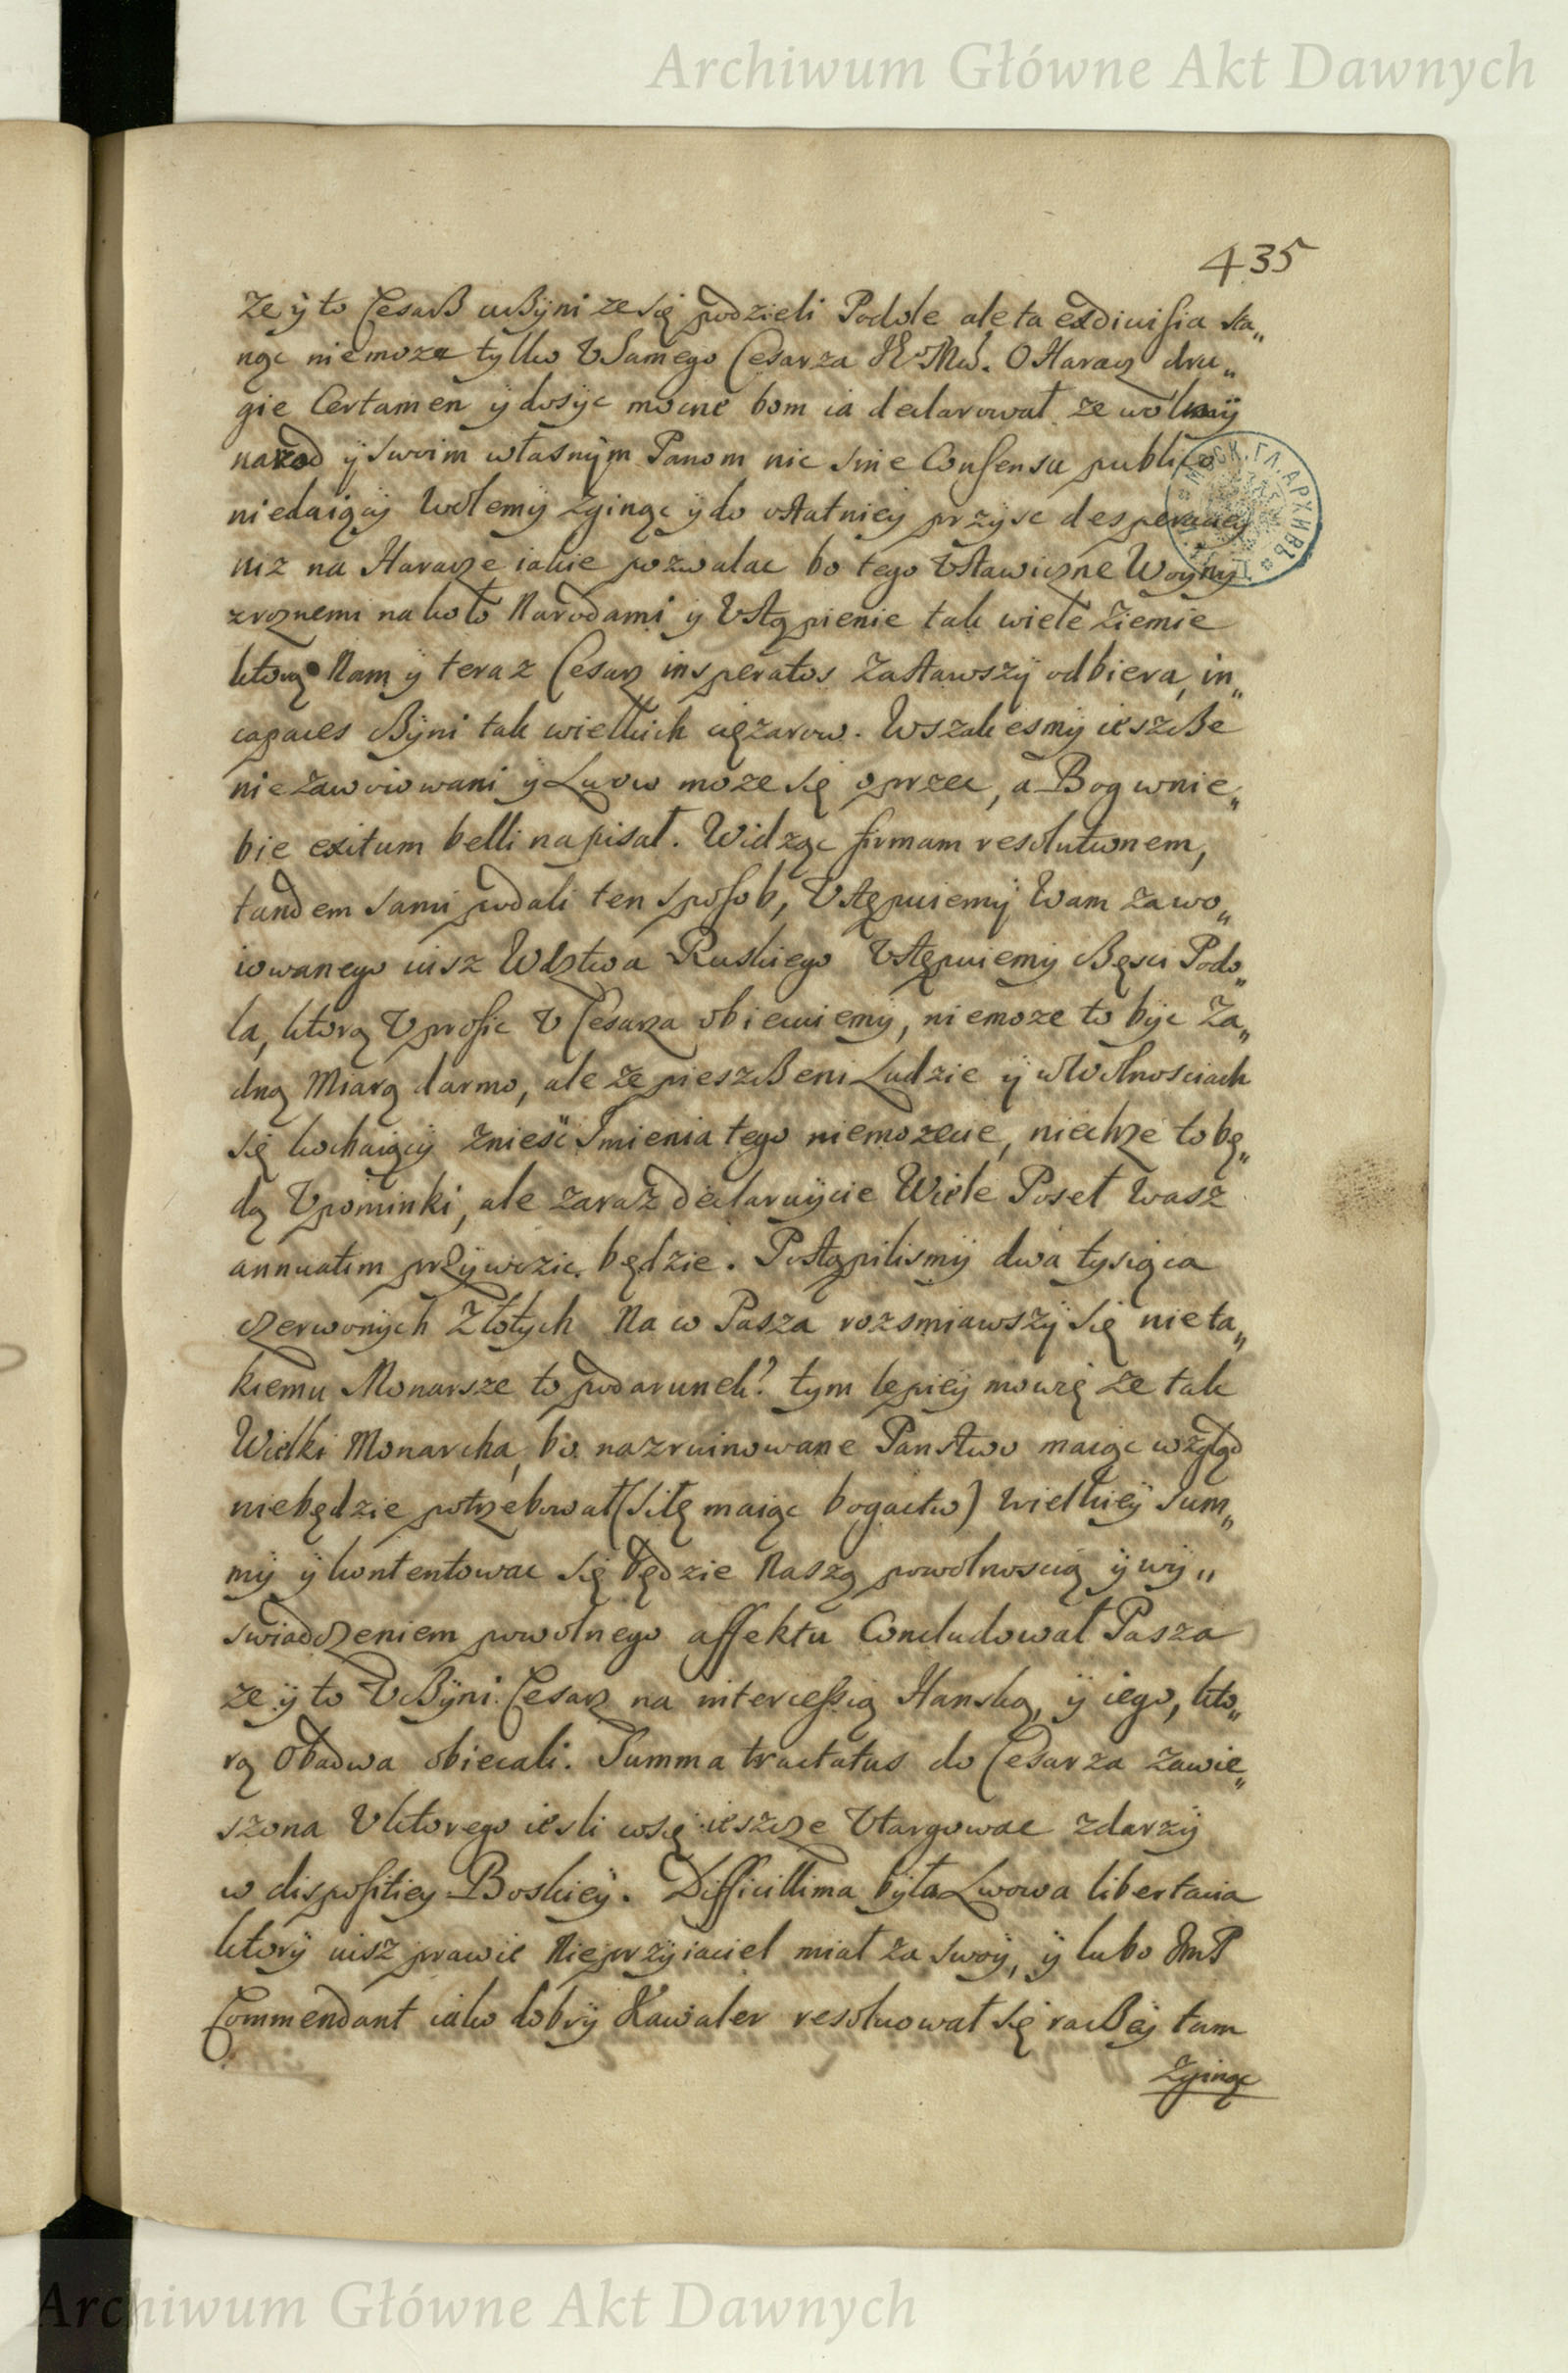 Archiwum Główne Akt Dawnych
435
Ze ÿ to Cesarz uczÿni ze się podzieli Podole ale ta exdiuisia sta„
nąc niemoze tylko V Samego Cesarza . O Haracz dru„
gie Certamen ÿ dosÿc mocne bom ia declarował ze wolnÿ
narod ÿ swoim własnÿm Panom nic sine Consensu publico
niedaiącÿ Wolemÿ zginąc ÿ do ostatnieÿ przÿsc desperacieÿ
niz na Haracze iakie pozwalac bo tego Vstawiczne Woÿnÿ
zroznemi na koło Narodami ÿ Vstąpienie tak wiele Ziemie
ktorą Nam ÿ teraz Cesarz insperatos Zastawszÿ odbiera, in„
capaces czÿni tak wielkich cięzarow. Wszakesmÿ ieszcze
niezawoiowani ÿ Lwow moze się oprzec, a Bog wnie„
bie exitum belli napisał. Widząc firmam resolutionem,
tandem sami podali ten sposob, Vstępuiemÿ Wam zawo„
iowanego iusz Wdztwa Ruskiego Vstępuiemÿ częsci Podo„
la, ktorą Vprosic V Cesarza obiecuiemÿ, niemoze to bÿc Za„
dną Miarą darmo, ale ze pieszczeni Ludzie ÿ w Wolnosciach
się kochaiącÿ znieść Imienia tego niemozecie, niechze to bę„
dą Vpominki, ale zaraz declaruÿcie Wiele Poseł Wasz
annuatim przÿwozic będzie. Postąpilismÿ dwa tysiąca
czerwonÿch Złotÿch Na co Pasza rozsmiawszÿ się nie ta„
kiemu Monarsze to podarunek? tym lepieÿ mowię ze tak
Wielki Monarcha, bo na zruinowane Panstwo maiąc wzgląd
niebędzie potrzebował (siłę maiąc bogactw) wielkieÿ Sum„
mÿ ÿ kontentowac się będzie Naszą powolnoscią ÿ wÿ„
swiadczeniem powolnego affektu Concludował Pasza
ze ÿ to Vczÿni Cesarz na intercessią Hanską, ÿ iego, kto„
rą Obadwa obiecali. Summa tractatus do Cesarza zawie„
szona V ktorego iesli cosię ieszcze Vtargowac zdarzÿ
w dispositieÿ Boskieÿ. Difficillima bÿła Lwowa libertacia
ktorÿ iusz prawie Nieprzÿiaciel miał za swoÿ, ÿ lubo JmP
Commendant iako dobrÿ Kawaler resoluował się raczeÿ tam
Zginąc
Archiwum Główne Akt Dawnych